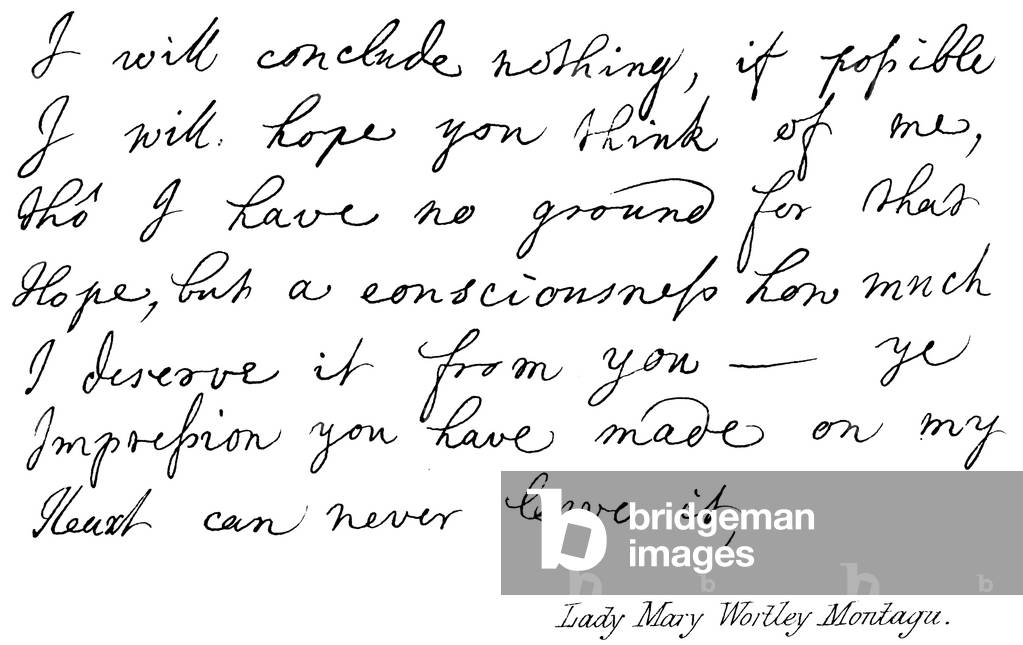 I will conclude nothing, if poſsible
I will hope you think of me,
thô I have no ground for that
Hope, but a consciousneſs how much
I deserve it from you — ye
Impreſsion you have made on my
Heart can never leave it,
bridgeman
images
Lady Mary Wortley Montagu.